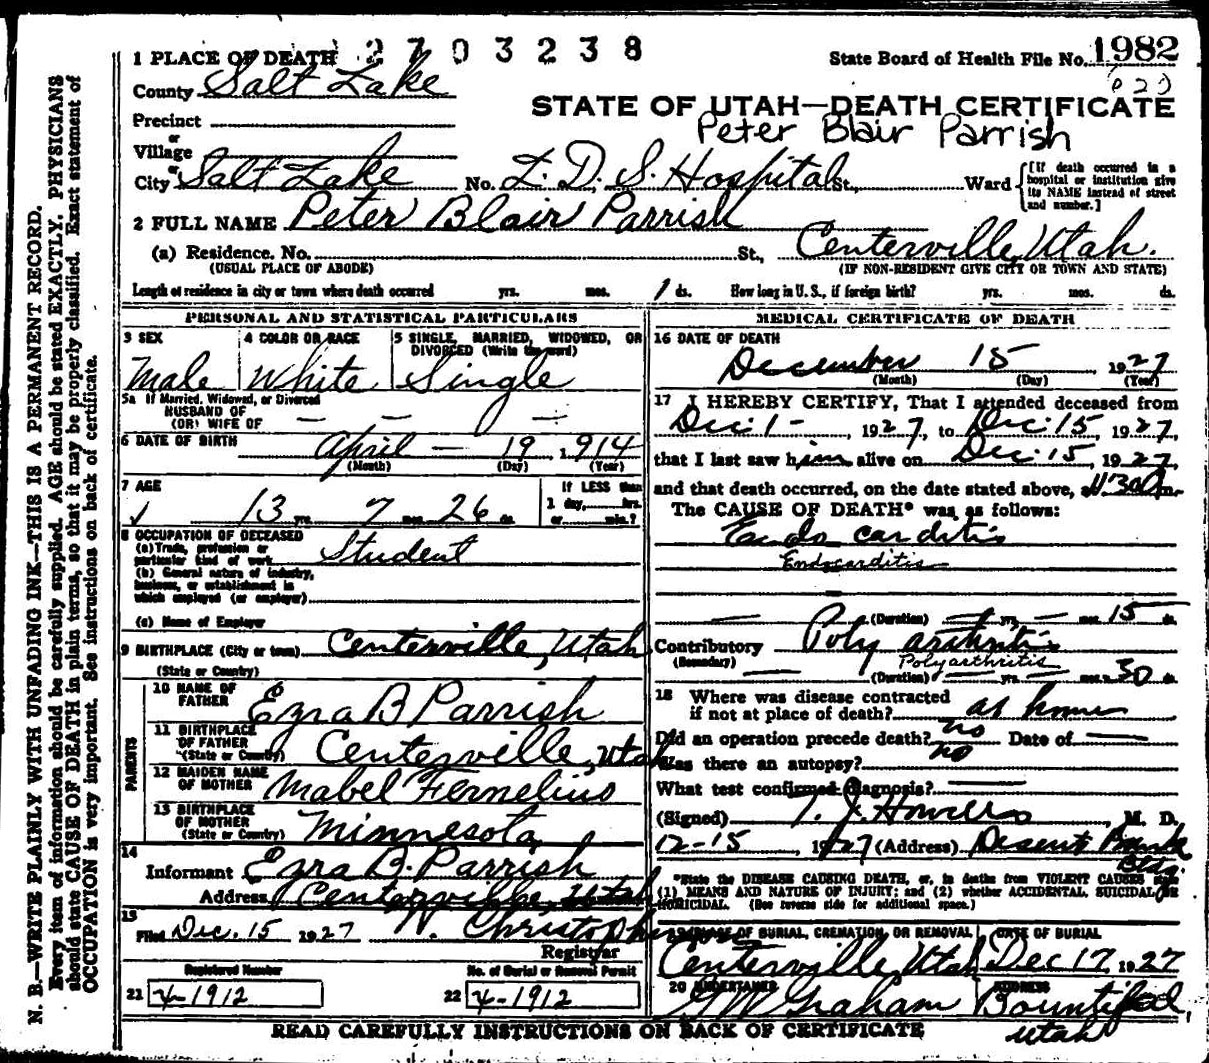 2703238
State Board of Health File No. 1982
1 PLACE OF DEATH
County Salt Lake
STATE OF UTAH—DEATH CERTIFICATE
Peter Blair Parrish
Precinct
or
Village
or
City Salt Lake No. L. D. S. Hospital St., Ward
[If death occurred in a hospital or institution give its NAME instead of street and number.]
2 FULL NAME Peter Blair Parrish
(a) Residence. No. St., Centerville, Utah.
(USUAL PLACE OF ABODE) (IF NON-RESIDENT GIVE CITY OR TOWN AND STATE)
Length of residence in city or town where death occurred yrs. mos. 1 ds. How long in U. S., if foreign birth? yrs. mos. ds.
PERSONAL AND STATISTICAL PARTICULARS
3 SEX 4 COLOR OR RACE 5 SINGLE, MARRIED, WIDOWED, OR DIVORCED (Write the word)
Male White Single
5a If Married, Widowed, or Divorced
HUSBAND OF
(OR) WIFE OF — — —
6 DATE OF BIRTH April — 19, 1914
(Month) (Day) (Year)
7 AGE If LESS than
1 day, hrs.
13 yrs. 7 mos. 26 ds. or min.?
8 OCCUPATION OF DECEASED
(a) Trade, profession or
particular kind of work Student
(b) General nature of industry,
business, or establishment in
which employed (or employer)
(c) Name of Employer
9 BIRTHPLACE (City or town) Centerville, Utah
(State or Country)
PARENTS
10 NAME OF
FATHER Ezra B Parrish
11 BIRTHPLACE
OF FATHER
(State or Country) Centerville, Utah
12 MAIDEN NAME
OF MOTHER Mabel Fernelius
13 BIRTHPLACE
OF MOTHER
(State or Country) Minnesota
14
Informant Ezra B. Parrish
Address Centerville, Utah
15
Filed Dec. 15 1927 W. Christopherson
Registrar
Registered Number No. of Burial or Removal Permit
21 x-1912 22 x-1912
MEDICAL CERTIFICATE OF DEATH
16 DATE OF DEATH
December 15, 1927
(Month) (Day) (Year)
17 I HEREBY CERTIFY, That I attended deceased from
Dec. 1 -, 1927, to Dec. 15, 1927,
that I last saw him alive on Dec. 15, 1927,
and that death occurred, on the date stated above, at 1130 m.
The CAUSE OF DEATH* was as follows:
Endo carditis
Endocarditis
(Duration) — yrs. — mos. 15 ds.
Contributory Poly arthritis
(Secondary) Polyarthritis
(Duration) — yrs. — mos. 30 ds.
18 Where was disease contracted
if not at place of death? at home
Did an operation precede death? no Date of —
Was there an autopsy? no
What test confirmed diagnosis? —
(Signed) T. J. Howells, M. D.
12-15, 1927 (Address) Deseret Bank
Bldg.
*State the DISEASE CAUSING DEATH, or, in deaths from VIOLENT CAUSES
(1) MEANS AND NATURE OF INJURY; and (2) whether ACCIDENTAL, SUICIDAL, OR
HOMICIDAL. (See reverse side for additional space.)
19 PLACE OF BURIAL, CREMATION, OR REMOVAL DATE OF BURIAL
Centerville, Utah Dec 17, 1927
20 UNDERTAKER ADDRESS
GW Graham Bountiful,
Utah
READ CAREFULLY INSTRUCTIONS ON BACK OF CERTIFICATE
N. B.—WRITE PLAINLY WITH UNFADING INK—THIS IS A PERMANENT RECORD.
Every item of information should be carefully supplied. AGE should be stated EXACTLY. PHYSICIANS
should state CAUSE OF DEATH in plain terms, so that it may be properly classified. Exact statement of
OCCUPATION is very important. See instructions on back of certificate.